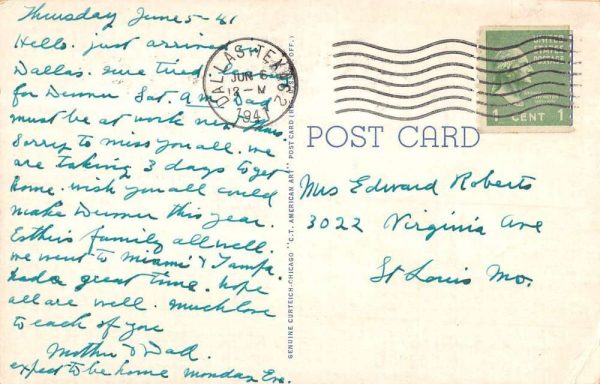 Thursday June 5-41
Hello. just arrived in
Dallas. sure tired
for Denver Sat. A.M. Dad
must be at work next Thurs
Sorry to miss you all. we
are taking 3 days to get
home. wish you all could
make Denver this year.
Esther's family all well.
we went to Miami & Tampa.
had a great time. hope
all are well. much love
to each of you
Mother & Dad.
expect to be home Monday Eve.
DALLAS, TEX.
JUN 6
12 - M
1941
GENUINE CURTEICH-CHICAGO "C.T. AMERICAN ART" POST CARD (REG. U.S. PAT. OFF.)
UNITED
STATES
POSTAGE
1 CENT 1
POST CARD
Mrs Edward Roberts
3022 Virginia Ave
St Louis Mo.